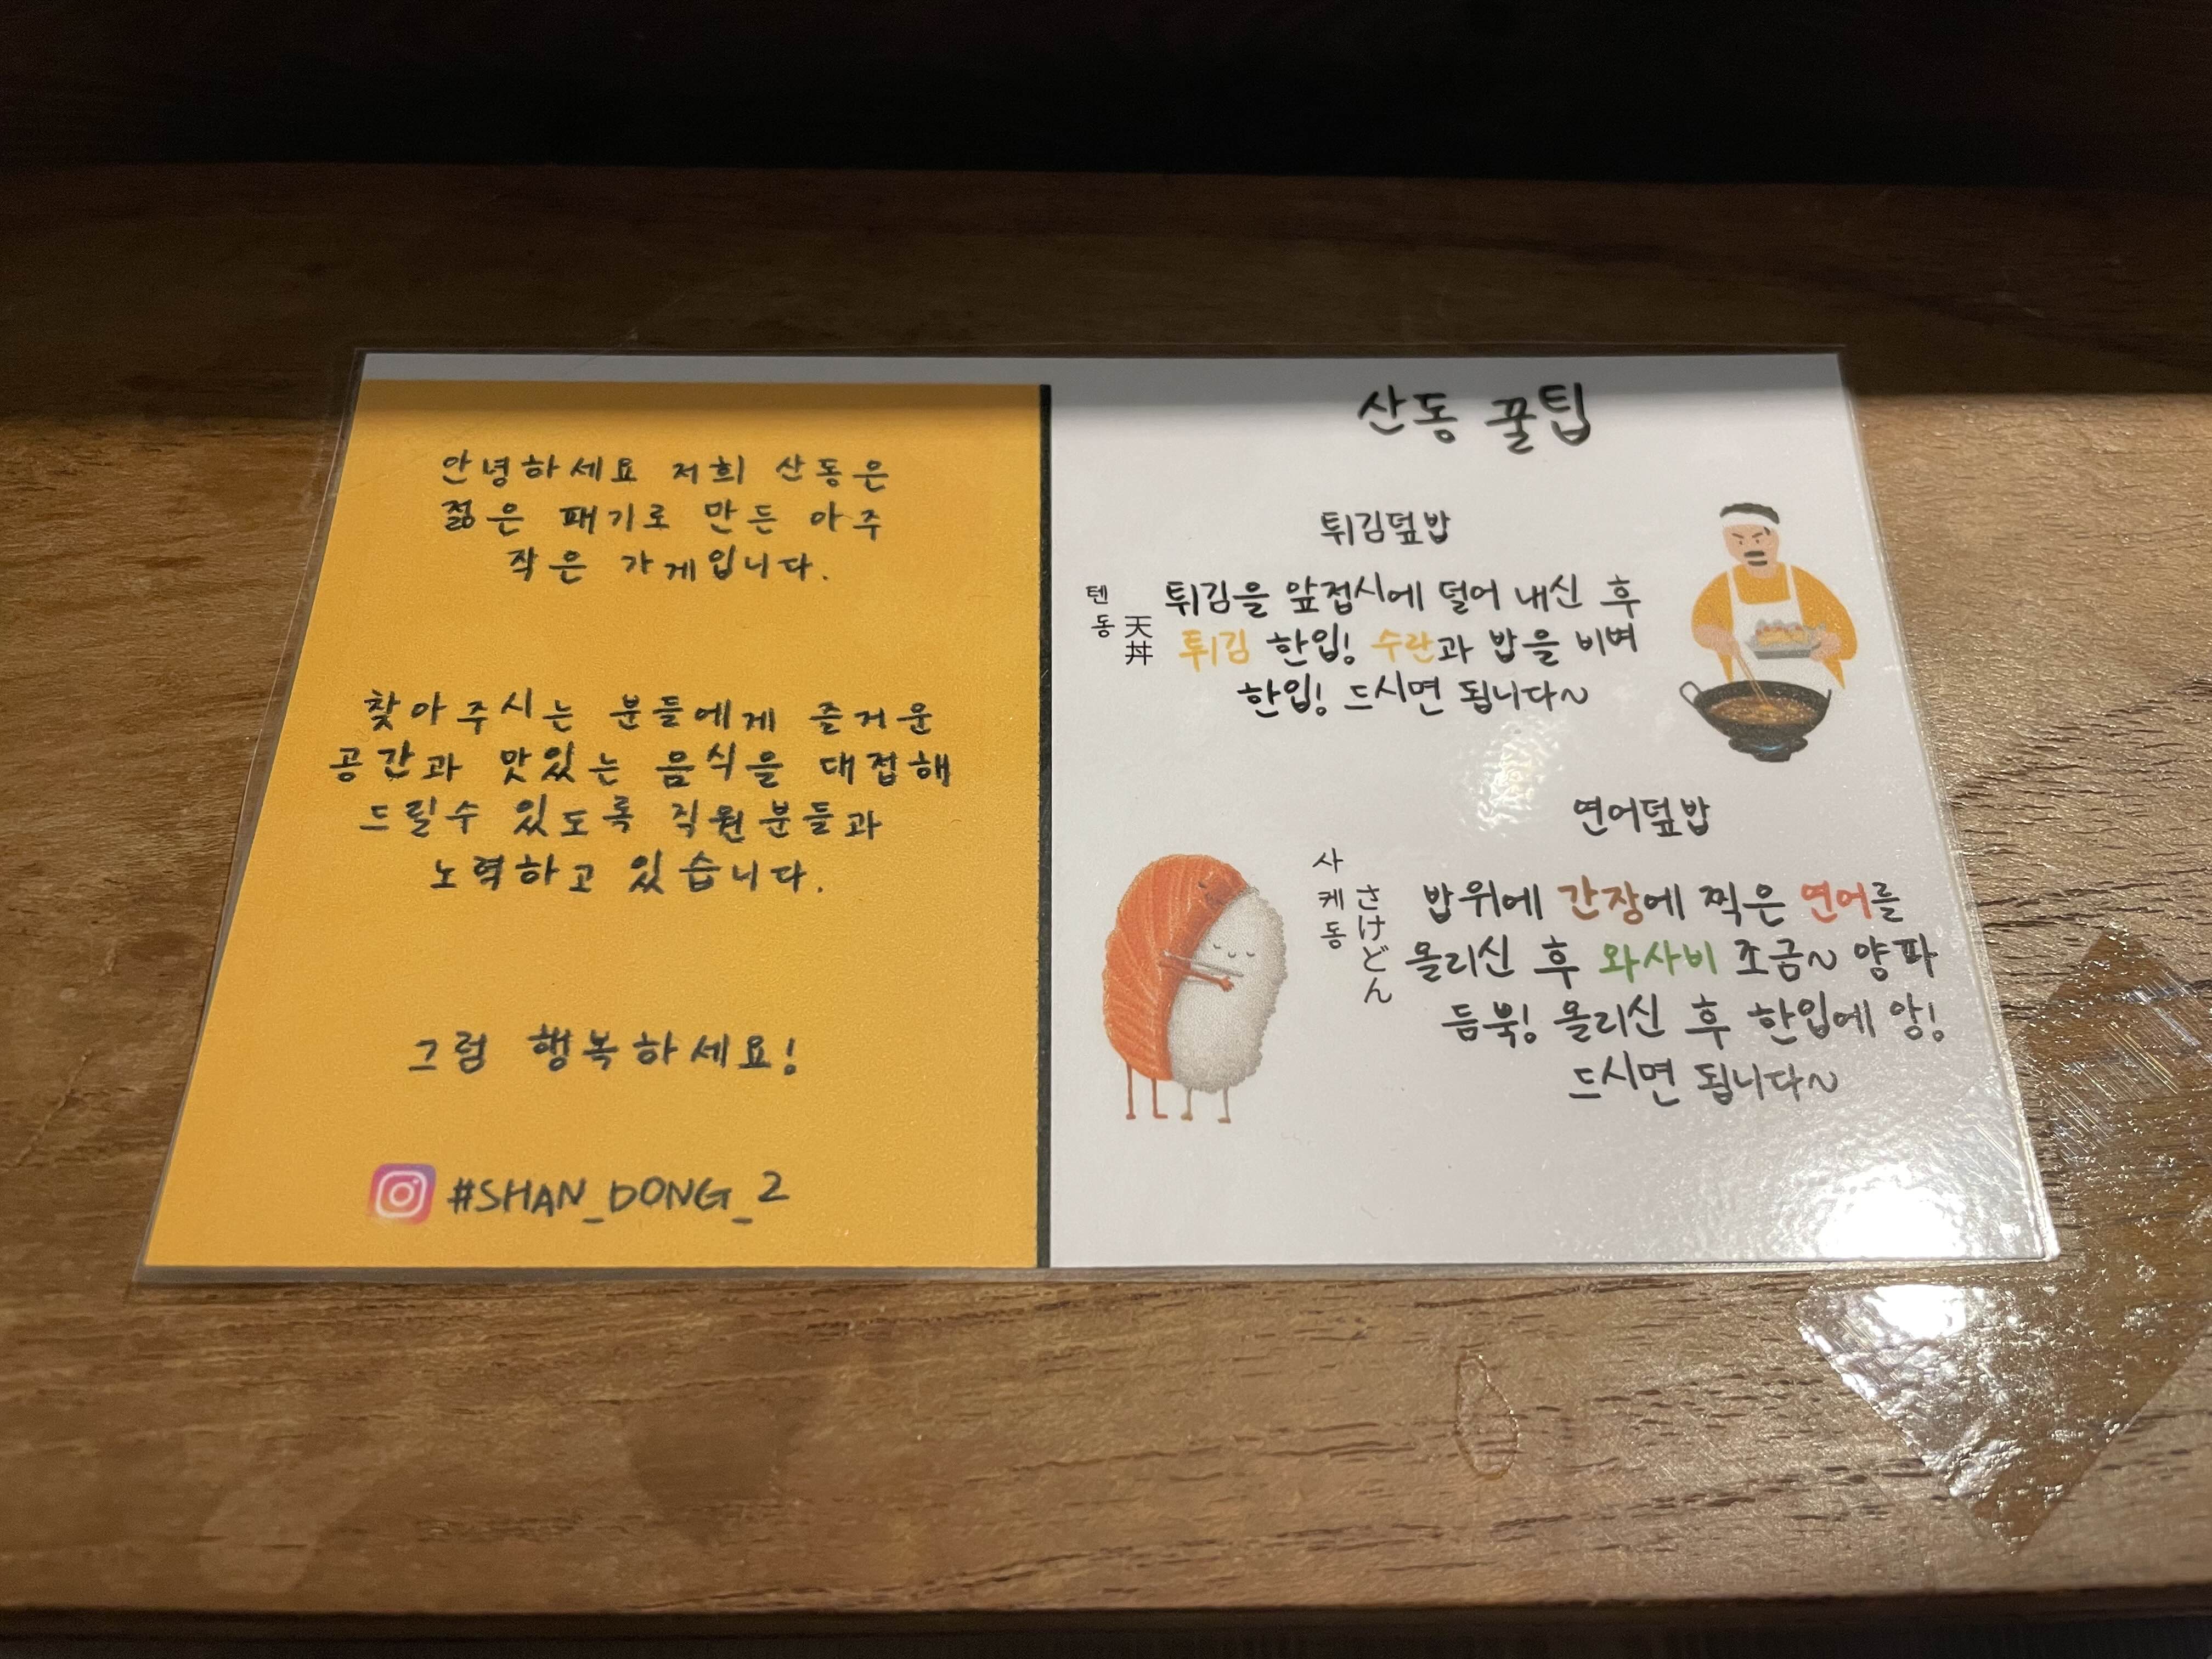 안녕하세요 저희 산동은
젊은 패기로 만든 아주
작은 가게입니다.
찾아주시는 분들에게 즐거운
공간과 맛있는 음식을 대접해
드릴수 있도록 직원분들과
노력하고 있습니다.
그럼 행복하세요!
#SHAN_DONG_2
산동 꿀팁
튀김덮밥
텐동
天丼
튀김을 앞접시에 덜어 내신 후
튀김 한입! 수란과 밥을 비벼
한입! 드시면 됩니다~
연어덮밥
사케동
さけどん
밥위에 간장에 찍은 연어를
올리신 후 와사비 조금~ 양파
듬뿍! 올리신 후 한입에 앙!
드시면 됩니다~